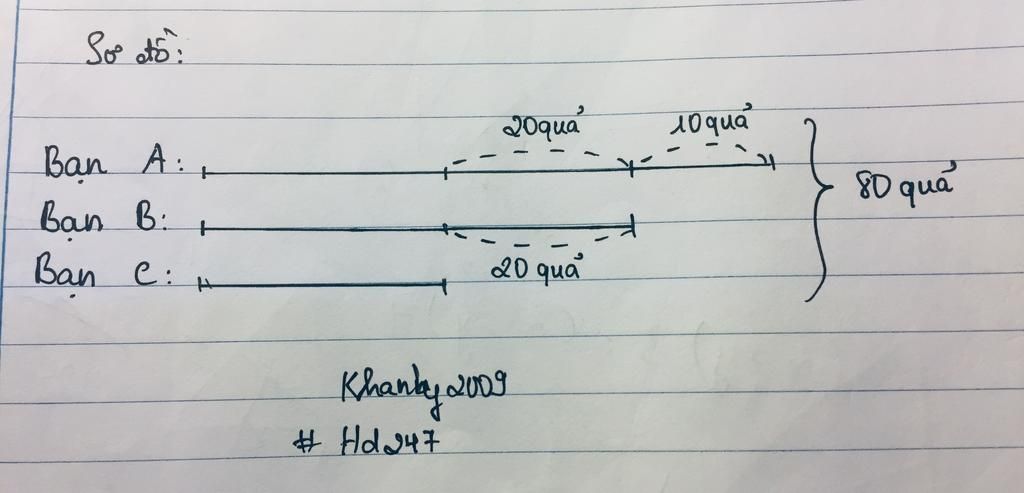 Sơ đồ:
20quả 10quả
Bạn A:
80 quả
Bạn B:
20 quả
Bạn C:
Khanhy2009
# Hd247